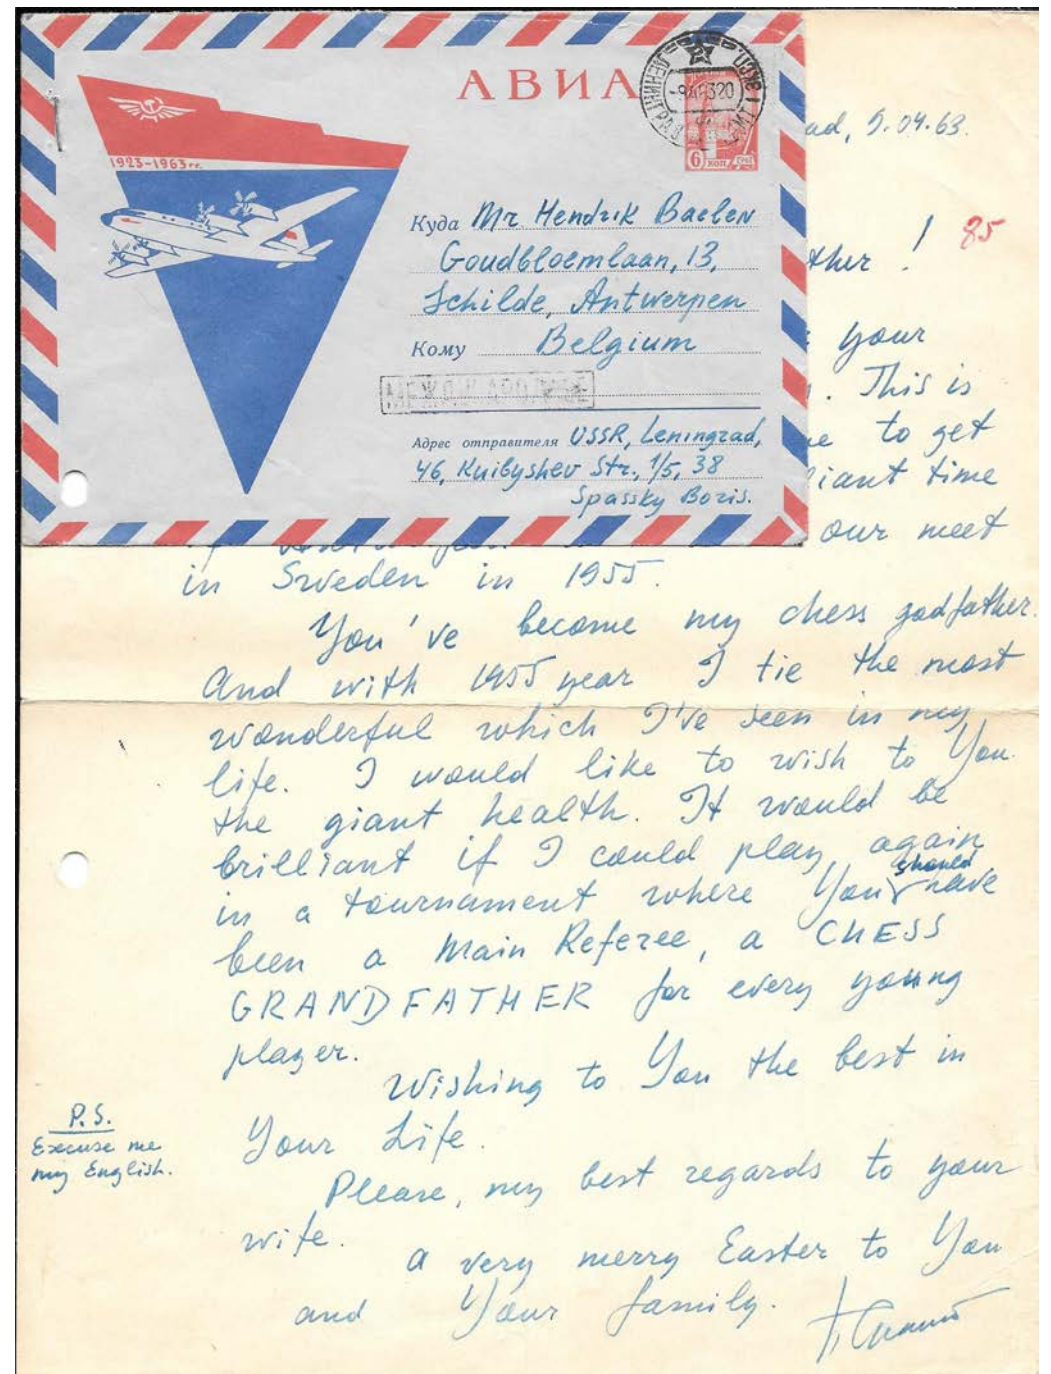 АВИА
ЛЕНИНГРАД
1923–1963гг.
6 коп
Куда Mr. Hendrik Baelen
Goudbloemlaan, 13,
Schilde, Antwerpen
Кому Belgium
МЕЖДУНАРОДНОЕ
Адрес отправителя USSR, Leningrad,
46, Kuibyshev Str., 1/5, 38
Spassky Boris.
ad, 9.04.63.
85
ther!
your
. This is
to get
liant time
our meet
in Sweden in 1955.
You've become my chess godfather.
And with 1955 year I tie the most
wonderful which I've seen in my
life. I would like to wish to You
the giant health. It would be
brilliant if I could play again
in a tournament where You should have
been a Main Referee, a CHESS
GRANDFATHER for every young
player.
Wishing to You the best in
Your Life.
P.S.
Excuse me
my English.
Please, my best regards to your
wife.
A very merry Easter to You
and Your family.